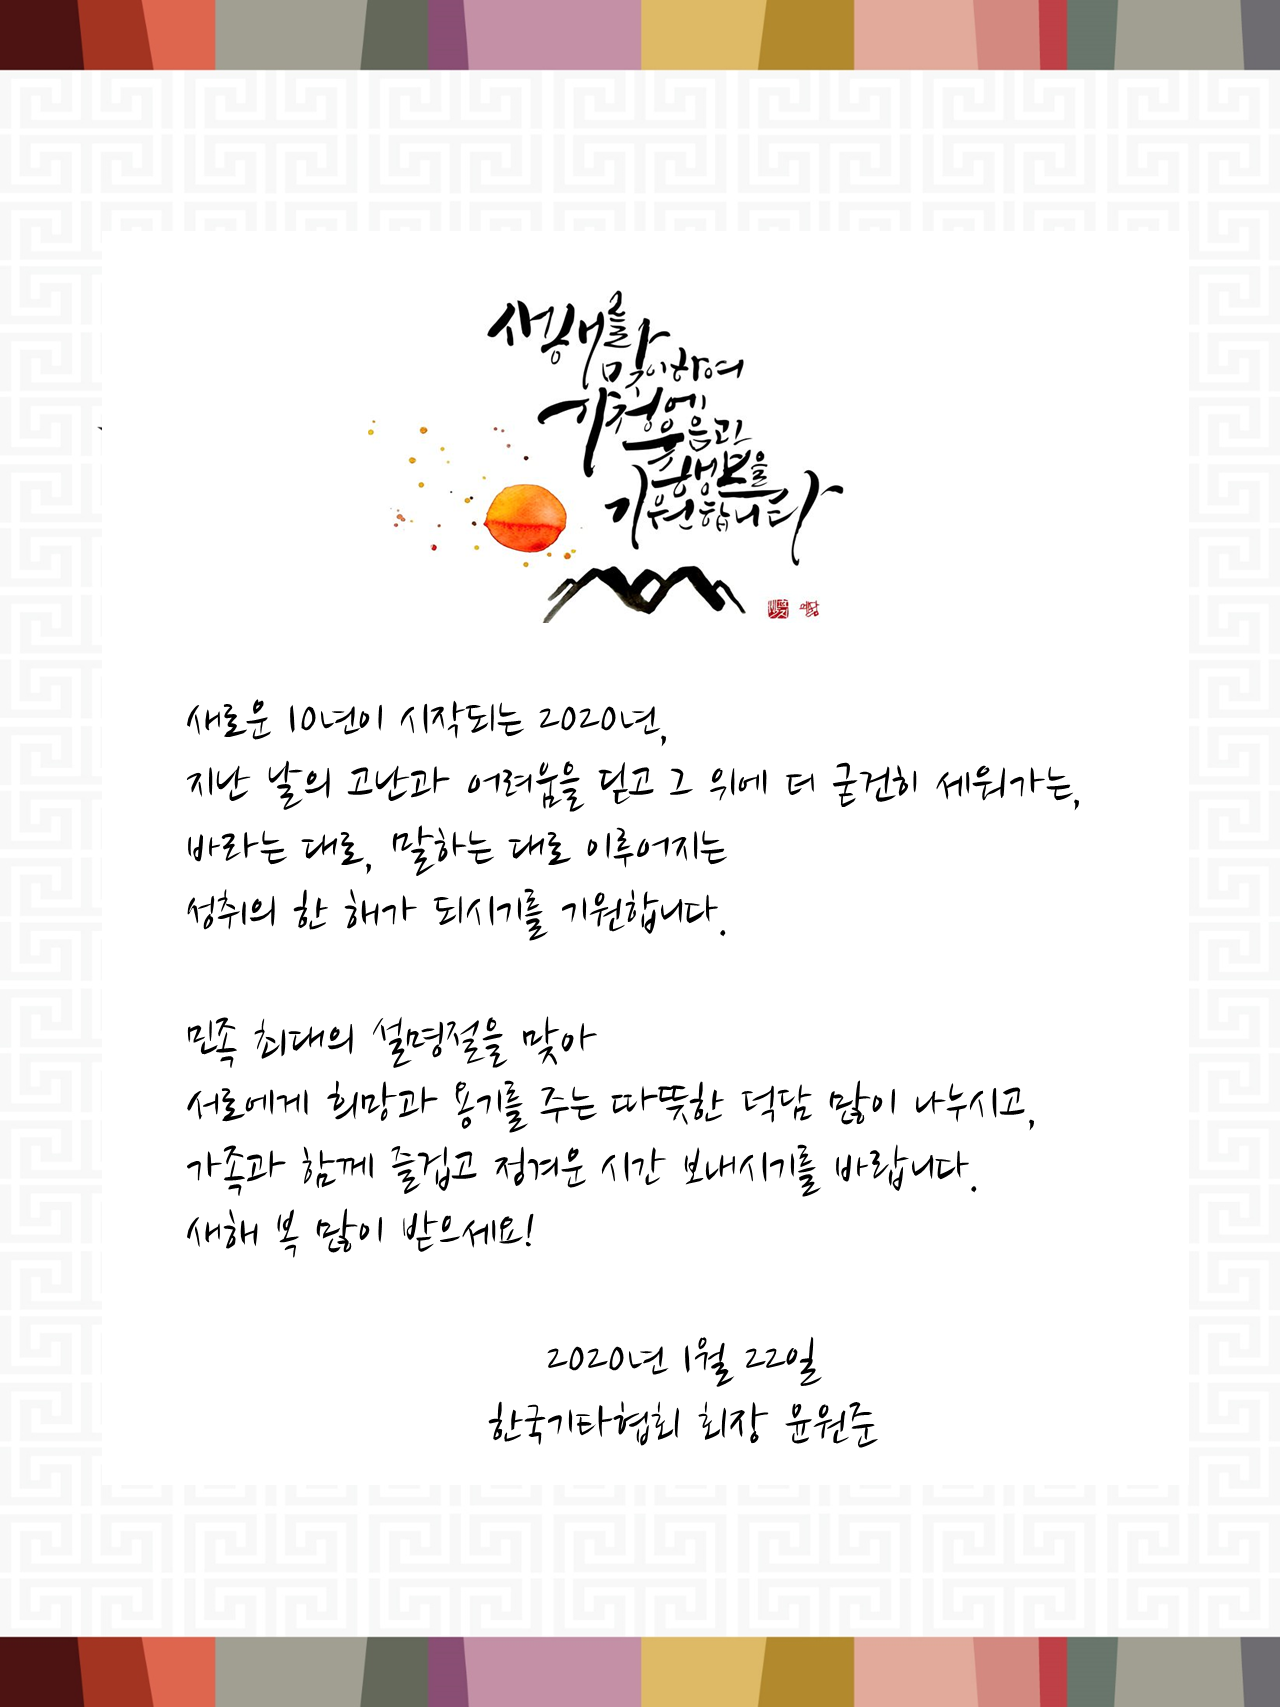 새해를
맞이하여
가정에
웃음과
행복을
기원합니다
새로운 10년이 시작되는 2020년,
지난 날의 고난과 어려움을 딛고 그 위에 더 굳건히 세워가는,
바라는 대로, 말하는 대로 이루어지는
성취의 한 해가 되시기를 기원합니다.
민족 최대의 설명절을 맞아
서로에게 희망과 용기를 주는 따뜻한 덕담 많이 나누시고,
가족과 함께 즐겁고 정겨운 시간 보내시기를 바랍니다.
새해 복 많이 받으세요!
2020년 1월 22일
한국기타협회 회장 윤원준